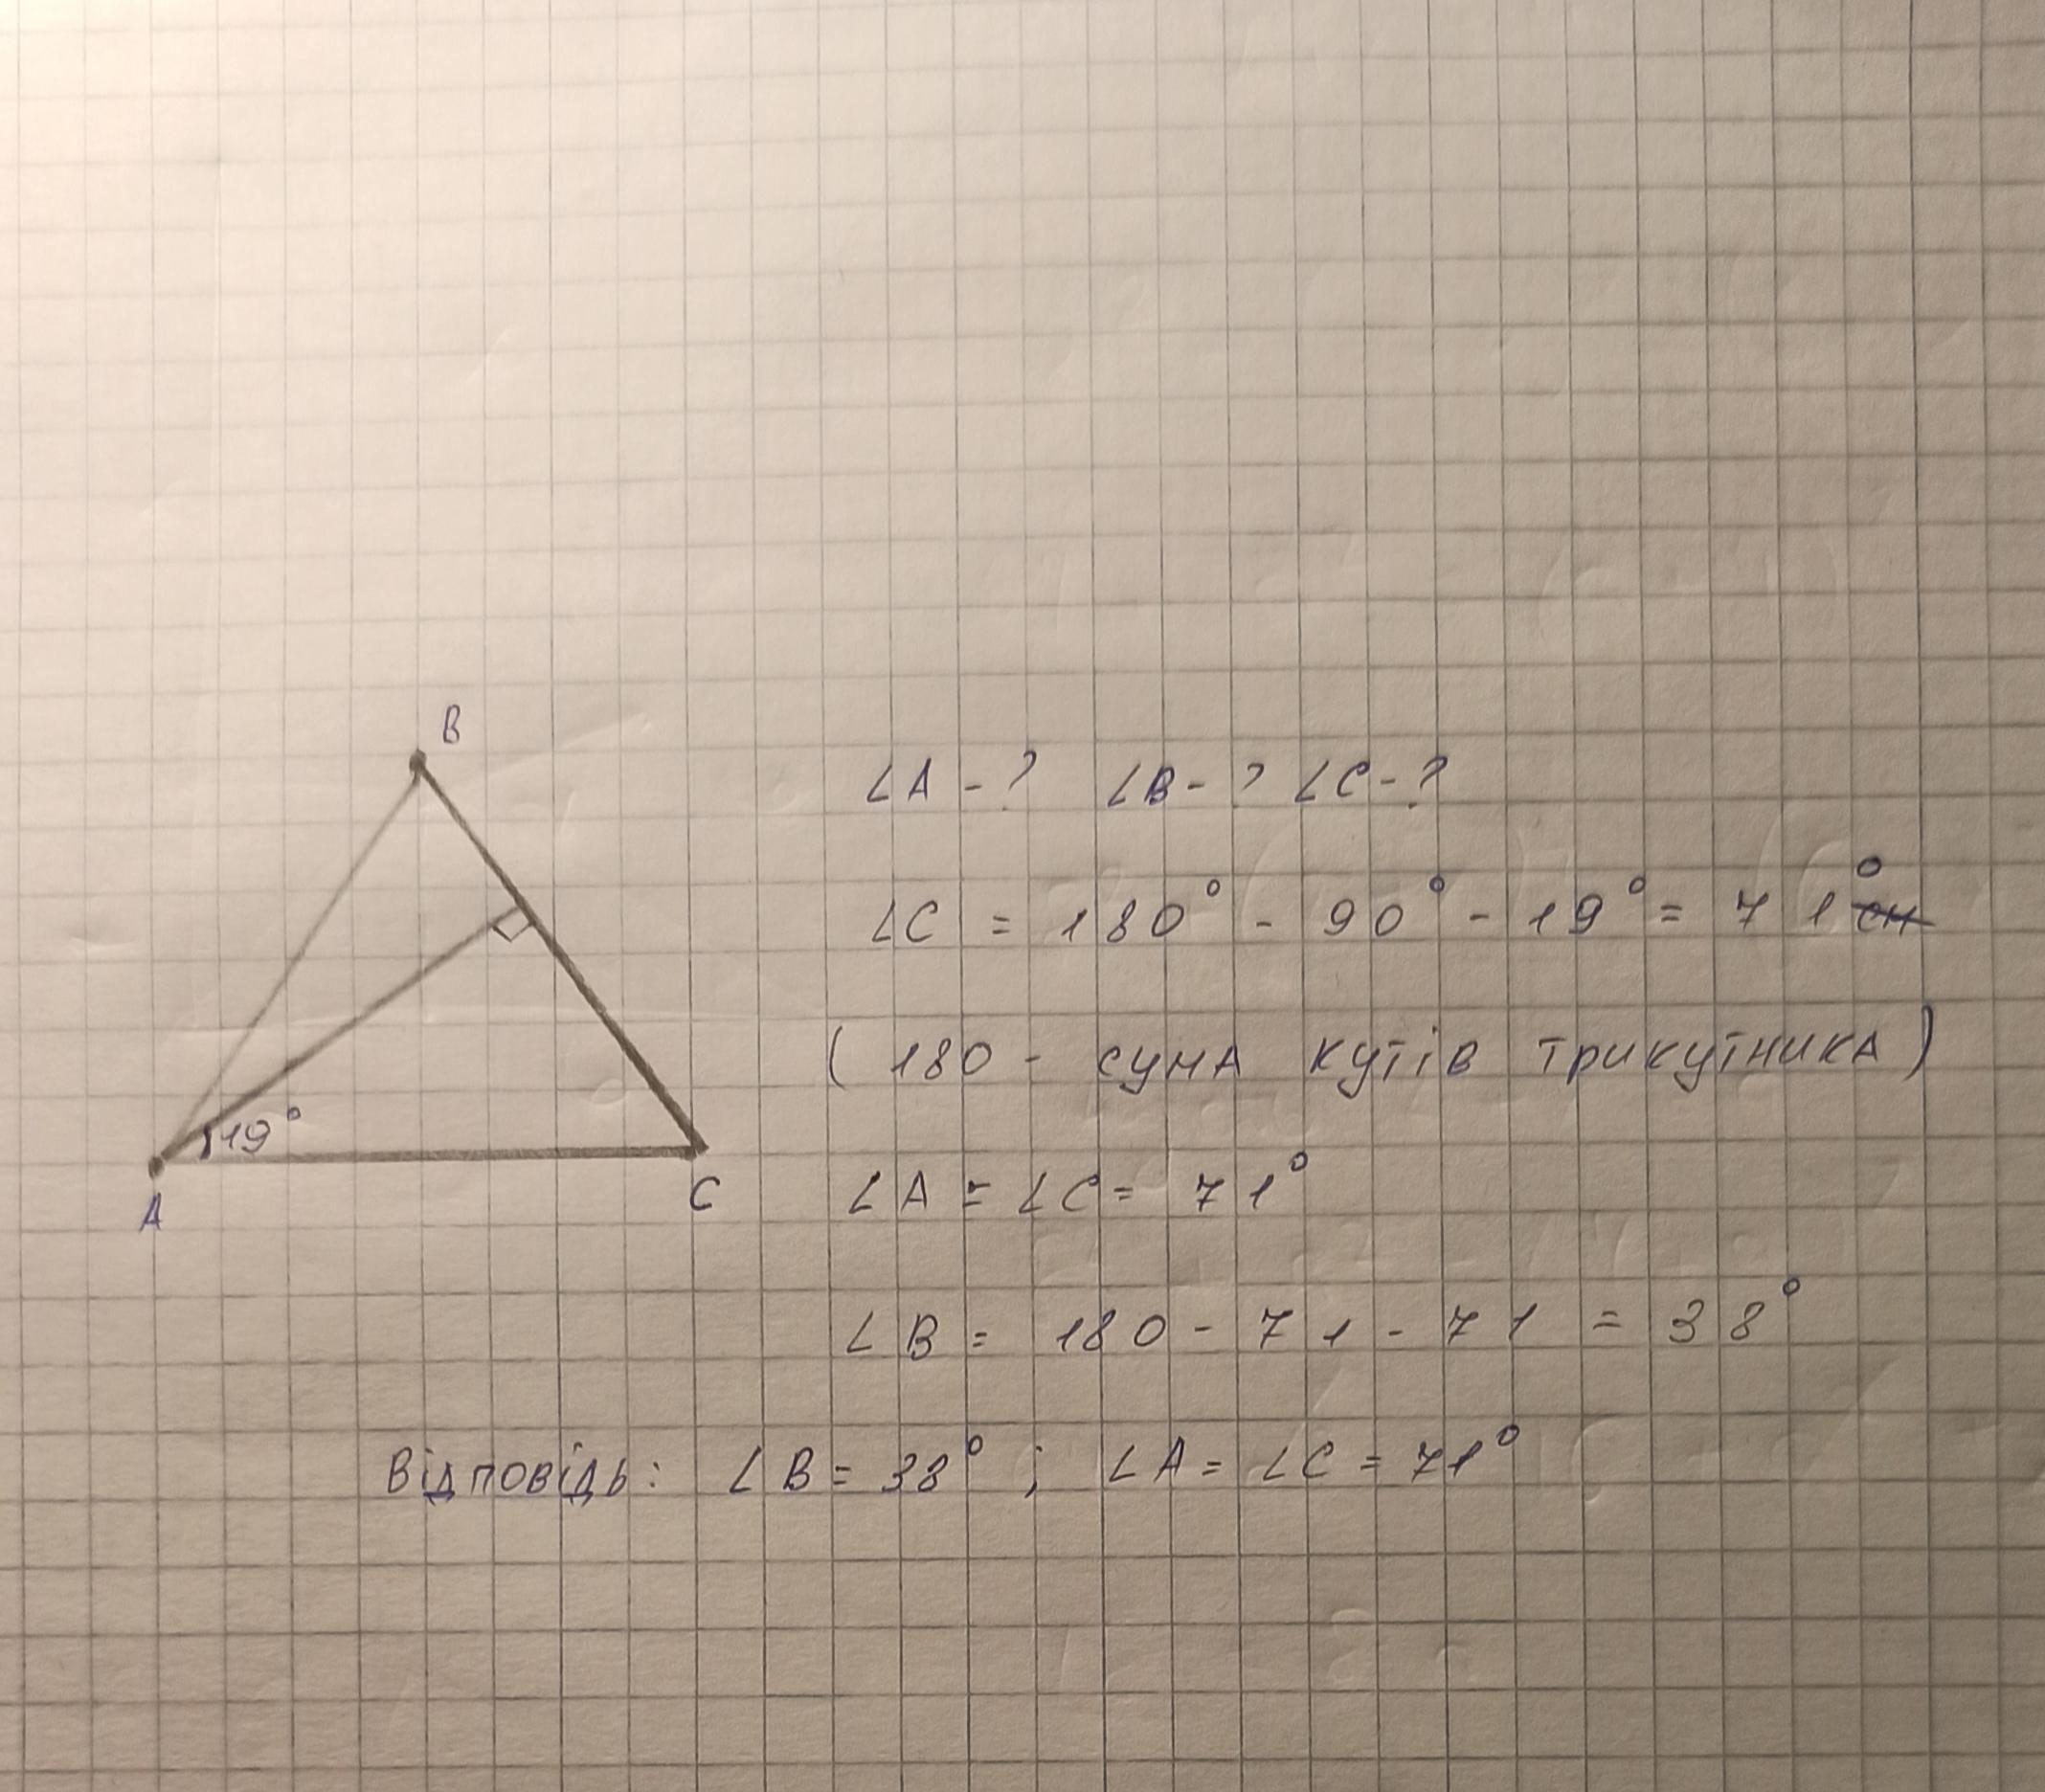 B
∠A - ? ∠B - ? ∠C - ?
∠C = 180° - 90° - 19° = 71° см
(180 - сума кутів трикутника)
19°
A
C
∠A = ∠C = 71°
∠B = 180 - 71 - 71 = 38°
Відповідь: ∠B = 38° ; ∠A = ∠C = 71°